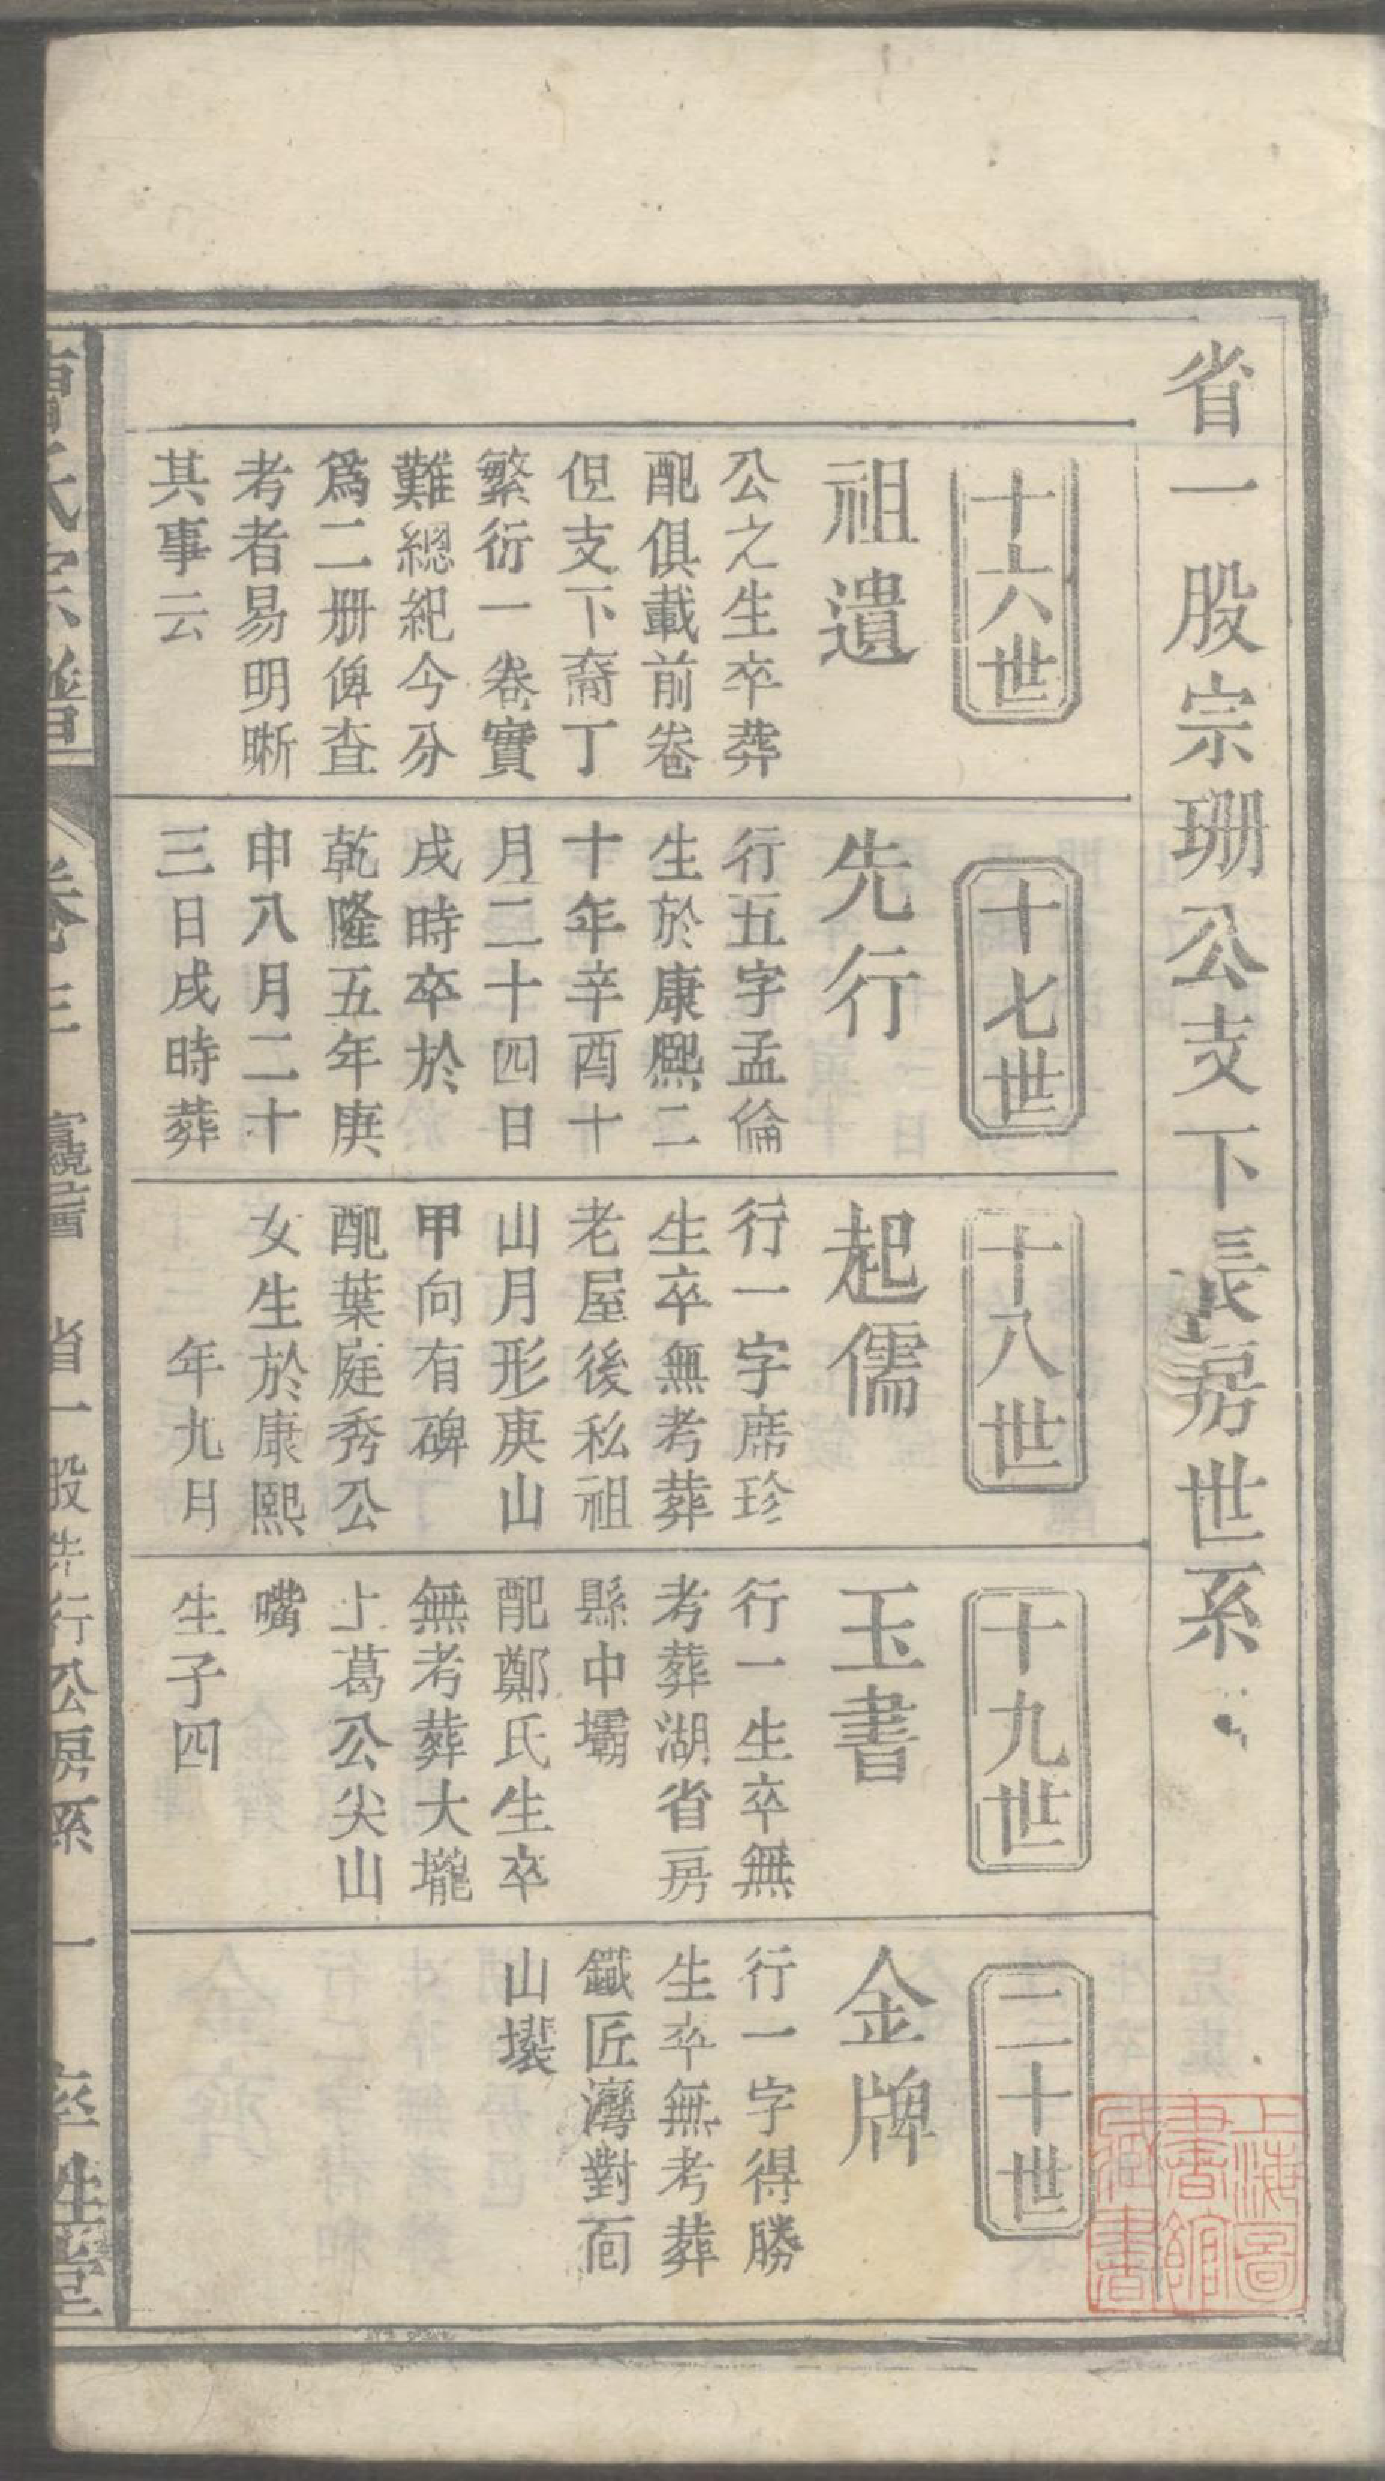 省一股宗珊公支下長房世系
十六世
祖遺
公之生卒葬
配俱載前卷
但支下裔丁
繁衍一卷實
難總紀今分
爲二册俾查
考者易明晰
其事云
十七世
先行
行五字孟倫
生於康熙二
十年辛酉十
月二十四日
戌時卒於
乾隆五年庚
申八月二十
三日戌時葬
十八世
起儒
行一字席珍
生卒無考葬
老屋後私祖
山月形庚山
甲向有碑
配葉庭秀公
女生於康熙
年九月
十九世
玉書
行一生卒無
考葬湖省房
縣中壩
配鄭氏生卒
無考葬大壠
上葛公尖山
嘴
生子四
二十世
金牌
行一字得勝
生卒無考葬
鐵匠灣對面
山塝
曹氏宗譜
卷三
省一股先行公房系
一
上海圖書館藏書